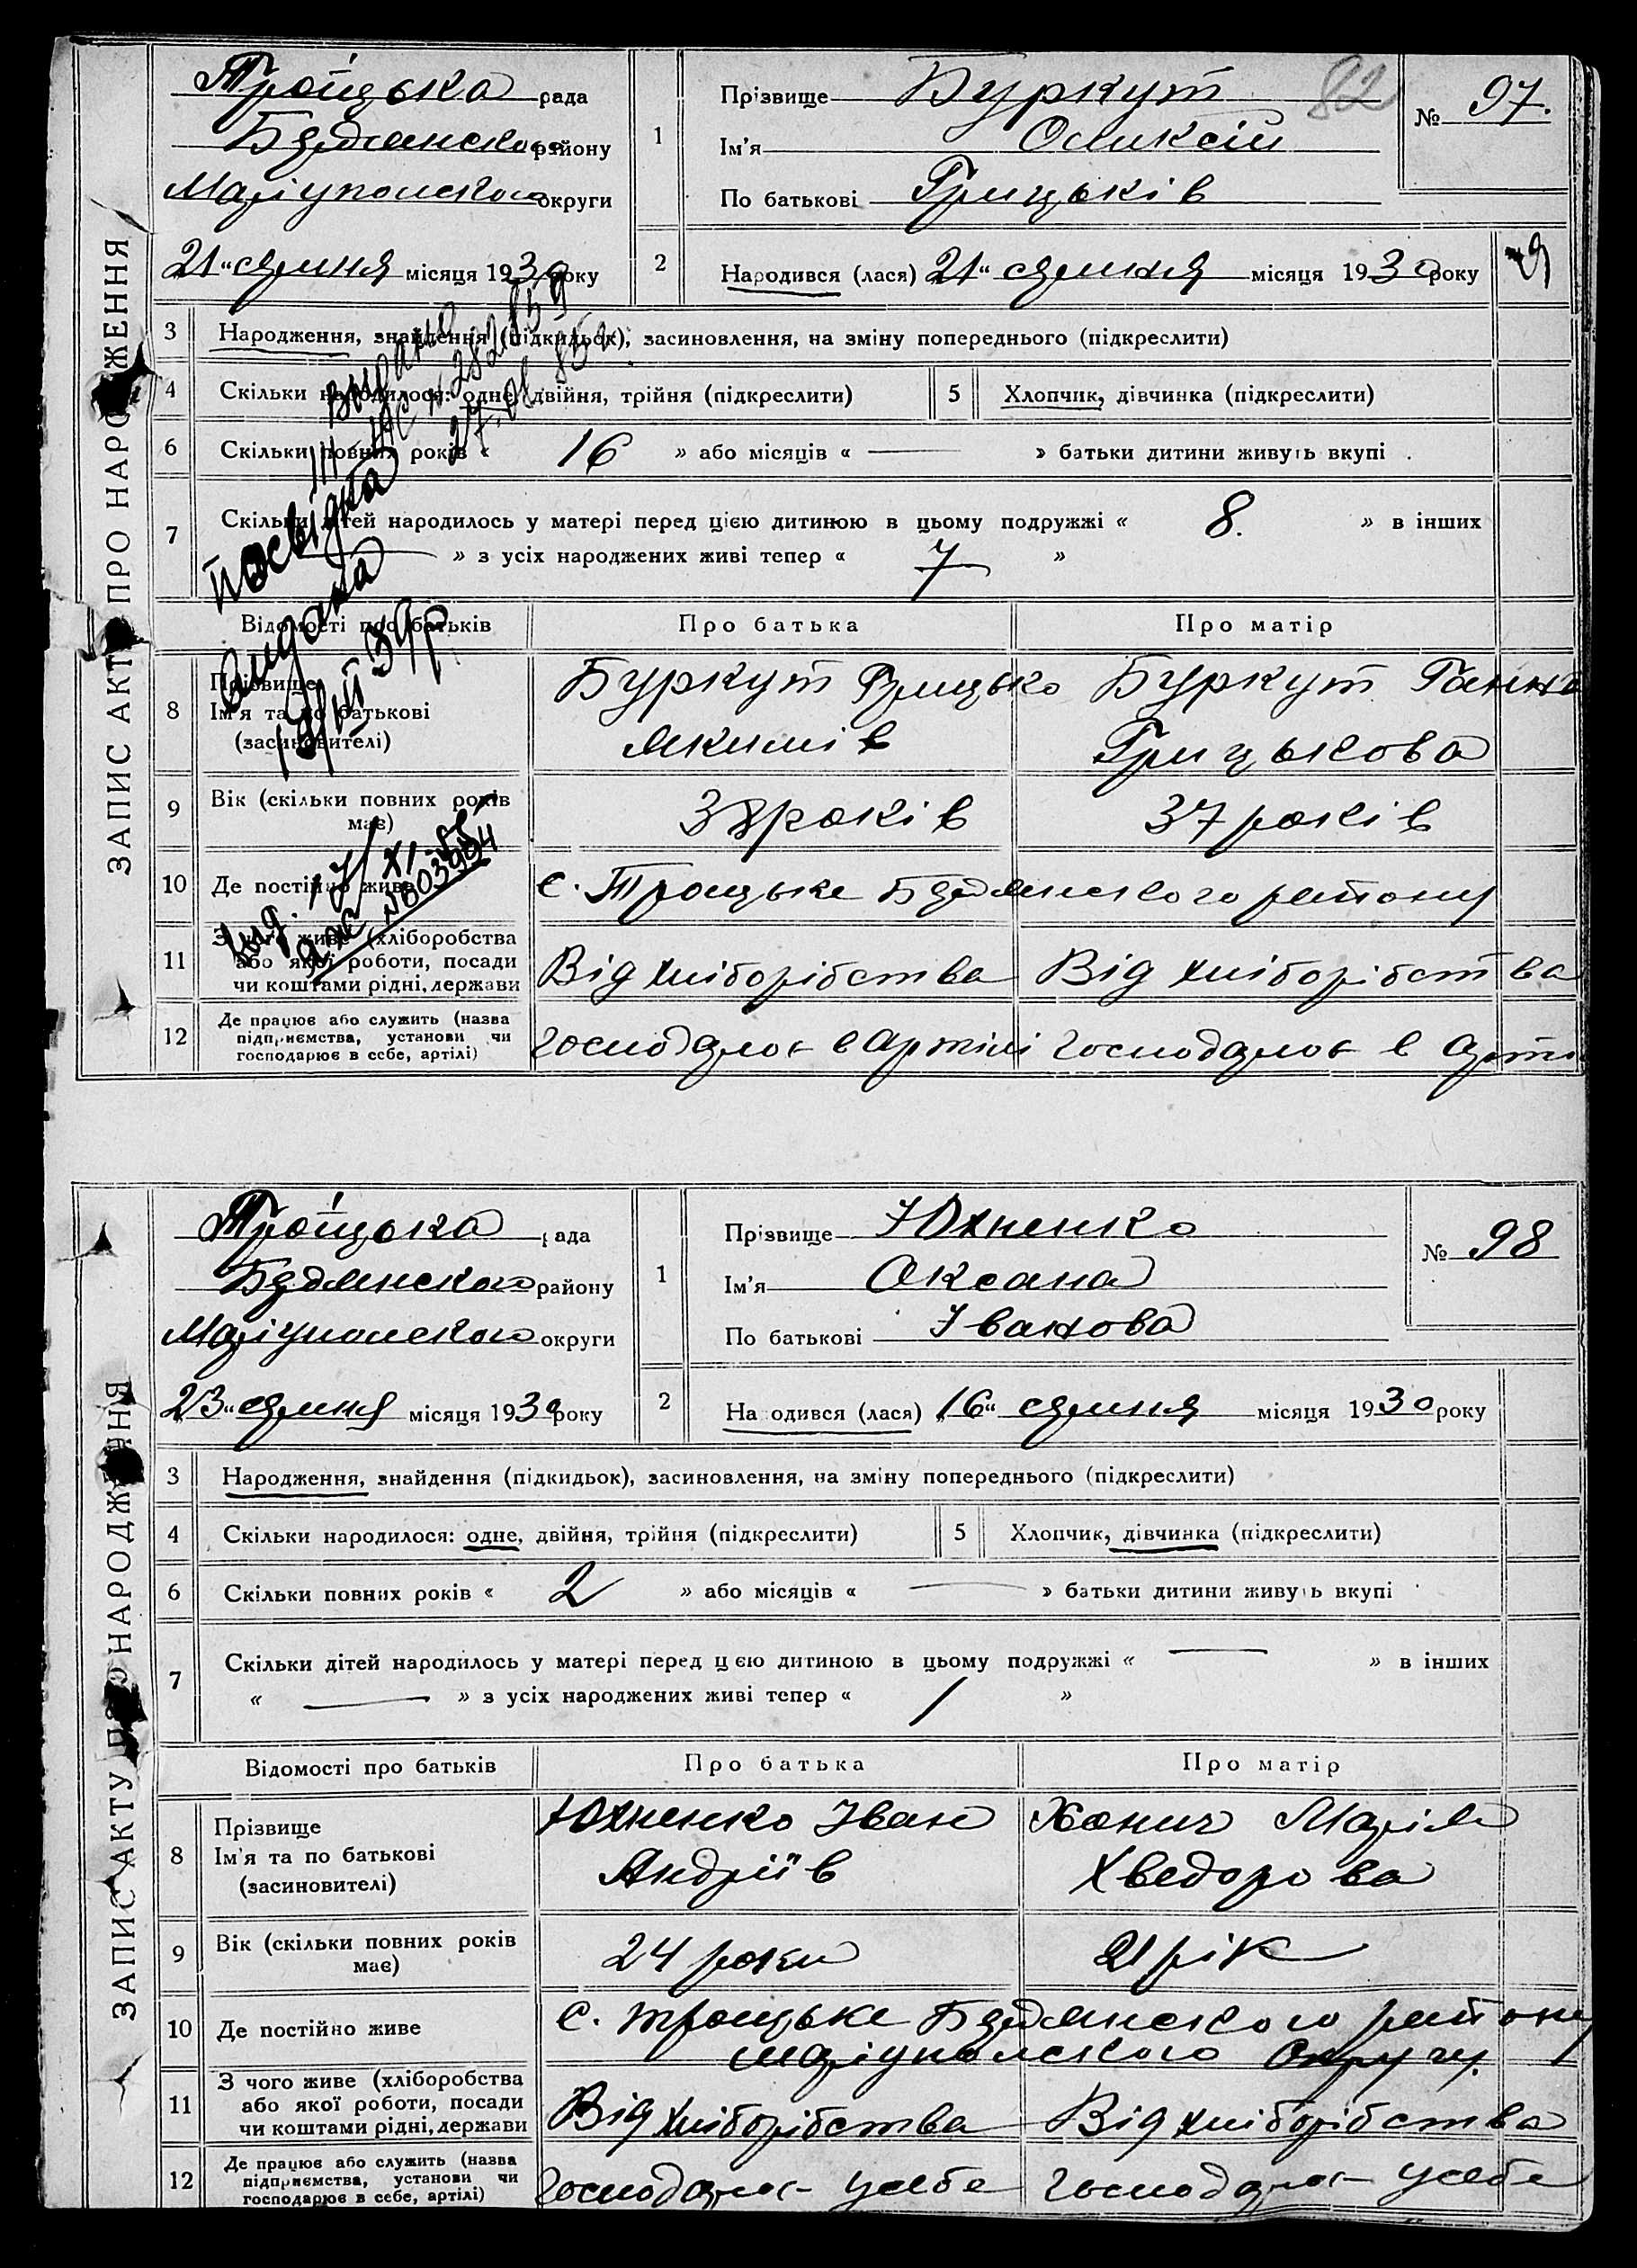 ЗАПИС АКТУ ПРО НАРОДЖЕННЯ
Троїцька рада
Бердянського району
Маріупольського округи
21 " серпня місяця 1930 року
1
Прізвище Буркут
82
Ім'я Оликсій
По батькові Грицьків
№ 97.
2
Народився (лася) 21 " серпня місяця 1930 року
3 Народження, знайдення (підкидьок), засиновлення, на зміну попереднього (підкреслити)
4 Скільки народилося: одне, двійня, трійня (підкреслити) 5 Хлопчик, дівчинка (підкреслити)
6 Скільки повних років « 16 » або місяців « — » батьки дитини живуть вкупі .
7 Скільки дітей народилось у матері перед цією дитиною в цьому подружжі « 8. » в інших
— » з усіх народжених живі тепер « 7 »
посвідка
видана
19/III 39 р.
Відомості про батьків Про батька Про матір
8 Прізвище Ім'я та по батькові (засиновителі)
Буркут Грицько Буркут Ганна
Якимів Грицькова
9 Вік (скільки повних років має) 38 років 37 років
10 Де постійно живе с. Троицьке Бердянського району
вид. 17/XI-55
ЯЖ №803994
11 З чого живе (хліборобства або якої роботи, посади чи коштами рідні, держави Від хліборібства Від хліборібства
12 Де працює або служить (назва підприємства, установи чи господарює в себе, артілі) господарює в артілі господарює в арті
ЗАПИС АКТУ ПРО НАРОДЖЕННЯ
Троїцька рада
Бердянського району
Маріупольського округи
23 " серпня місяця 1930 року
1
Прізвище Юхненко
Ім'я Оксана
По батькові Іванова
№ 98
2
Народився (лася) 16 " серпня місяця 1930 року
3 Народження, знайдення (підкидьок), засиновлення, на зміну попереднього (підкреслити)
4 Скільки народилося: одне, двійня, трійня (підкреслити) 5 Хлопчик, дівчинка (підкреслити)
6 Скільки повних років « 2 » або місяців « — » батьки дитини живуть вкупі
7 Скільки дітей народилось у матері перед цією дитиною в цьому подружжі « — » в інших
« — » з усіх народжених живі тепер « 1 »
Відомості про батьків Про батька Про матір
8 Прізвище Ім'я та по батькові (засиновителі)
Юхненко Іван Ханич Марія
Андріїв Хведорова
9 Вік (скільки повних років має) 24 роки 21 рік
10 Де постійно живе с. Троицьке Бердянського району
Маріупольського Округу.
11 З чого живе (хліборобства або якої роботи, посади чи коштами рідні, держави Від хліборібства Від хліборібства
12 Де працює або служить (назва підприємства, установи чи господарює в себе, артілі) господарює усебе господарює усебе